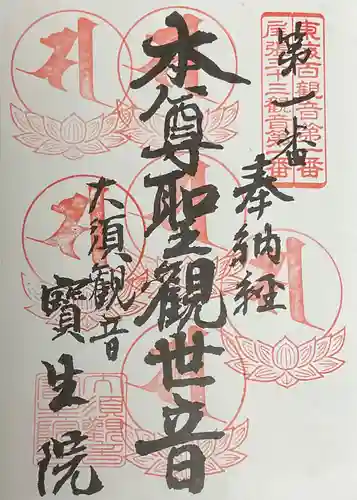 東海百観音第一番
尾張三十三観音第一番
第一番
奉納経
本尊聖観世音
大須観音
寶生院